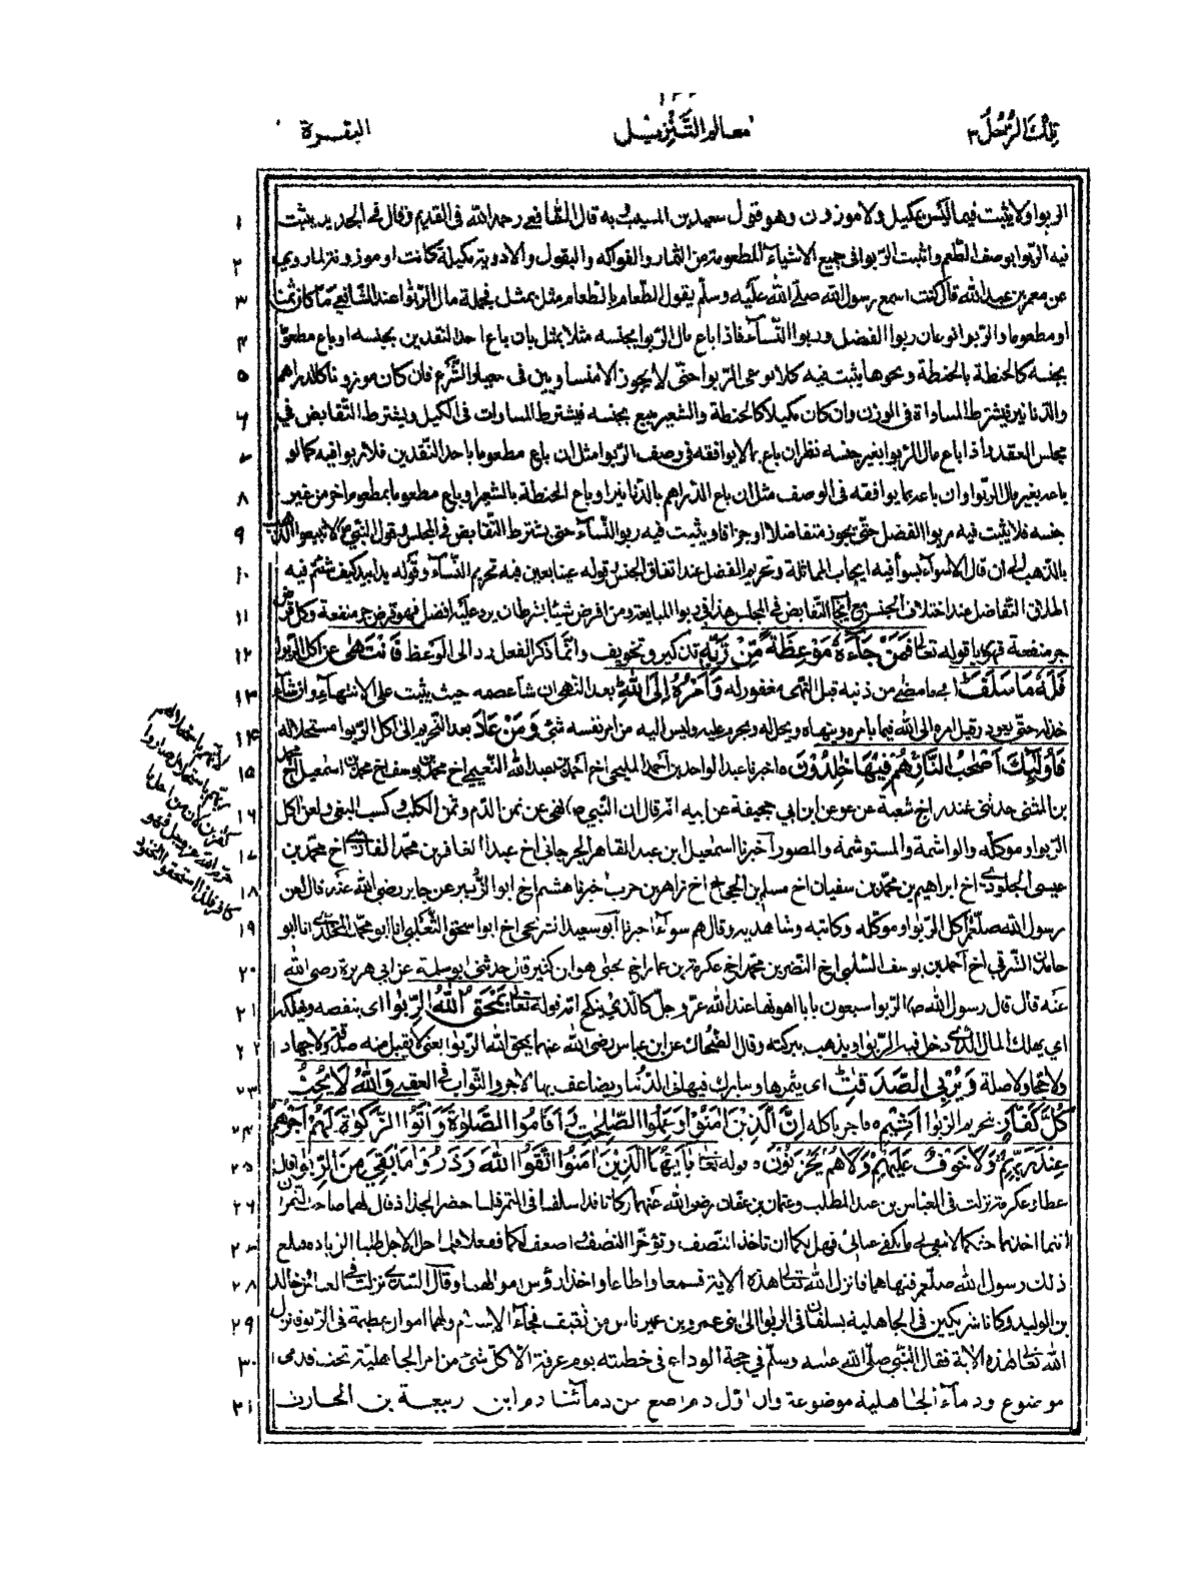 تلك الرسل ٣
معالم التنزيل
البقرة
الربوا ولا يثبت فيما ليس بمكيل ولا موزون وهو قول سعيد بن المسيب به قال الشافعي رحمه الله فى القديم وقال فى الجديد يثبت ١
فيه الربوا بوصف الطعم واثبت الربوا فى جميع الاشياء المطعومة من الثمار والفواكه والبقول والادوية مكيلة كانت او موزونة لما روى ٢
عن معمر بن عبد الله قال كنت اسمع رسول الله صلى الله عليه وسلم يقول الطعام بالطعام مثل بمثل فجملة مال الربوا عند الشافعي ما كان ثمنا ٣
او مطعوما والربوا نوعان ربوا الفضل وربوا النساء فاذا باع مال الربوا بجنسه مثلا بمثل بان باع احد النقدين بجنسه او باع مطعوما ٤
بجنسه كالحنطة بالحنطة ونحوها يثبت فيه كلا نوعى الربوا حتى لا يجوز الا متساويين فى معيار الشرع فان كان موزونا كالدراهم ٥
والدنانير فيشترط المساواة فى الوزن وان كان مكيلا كالحنطة والشعير بيع بجنسه فيشترط المساوات فى الكيل ويشترط التقابض فى ٦
مجلس العقد واذا باع مال الربوا بغير جنسه نظر ان باع بما لا يوافقه فى وصف الربوا مثل ان باع مطعوما باحد النقدين فلا ربوا فيه كما لو ٧
باعه بغير مال الربوا وان باعه بما يوافقه فى الوصف مثل ان باع الدراهم بالدنانير او باع الحنطة بالشعير او باع مطعوما بمطعوم اخر من غير ٨
جنسه فلا يثبت فيه ربوا الفضل حتى يجوز متفاضلا او جزافا ويثبت فيه ربوا النساء حتى يشترط التقابض فى المجلس وقول النبي لا تبيعوا الذهب ٩
بالذهب الى ان قال الا سواء بسواء فيه ايجاب المماثلة وتحريم الفضل عند اتفاق الجنس وقوله عينا بعين فيه تحريم النساء وقوله يدا بيد كيف شئتم فيه ١٠
اطلاق التفاضل عند اختلاف الجنس مع ايجاب التقابض فى المجلس هذا فى ربوا المبايعة ومن اقرض شيئا بشرط ان يرد عليه افضل فهو قرض جر منفعة وكل قرض ١١
جر منفعة فهو ربا قوله تعالى فَمَنْ جَاءَهُ مَوْعِظَةٌ مِّنْ رَّبِّهٖ تذكير وتخويف وانما ذكر الفعل ردا الى الوعظ فَانْتَهٰى عن اكل الربوا ١٢
فَلَهُ مَا سَلَفَ اى ما مضى من ذنبه قبل النهى مغفور له وَاَمْرُهُ اِلَى اللهِ بعد النهى ان شاء عصمه حيث يثبت على الانتهاء وان شاء ١٣
خذله حتى يعود وقيل امره الى الله فيما يامره وينهاه ويحل له ويحرم عليه وليس اليه من امر نفسه شئ وَمَنْ عَادَ بعد التحريم الى اكل الربوا مستحلا له ١٤
فَاُولٰئِكَ اَصْحٰبُ النَّارِ هُمْ فِيْهَا خٰلِدُوْنَ ه اخبرنا عبد الواحد بن احمد المليحى اخ احمد بن عبد الله النعيمى اخ محمد بن يوسف اخ محمد بن اسمعيل اخ محمد ١٥
بن المثنى حدثنى غندر اخ شعبة عن عون ابن ابي جحيفة عن ابيه انه قال ان النبي نهى عن ثمن الدم وثمن الكلب وكسب البغى ولعن اكل ١٦
الربوا وموكله والواشمة والمستوشمة والمصور اخبرنا اسمعيل ابن عبد القاهر الجرجانى اخ عبد الغافر بن محمد الفارسى اخ محمد بن ١٧
عيسى الجلودى اخ ابراهيم بن محمد بن سفيان اخ مسلم بن الحجاج اخ زهير بن حرب اخبرنا هشيم اخ ابو الزبير عن جابر رضى الله عنه قال لعن ١٨
رسول الله صلعم اكل الربوا وموكله وكاتبه وشاهديه وقال هم سواء اخبرنا ابو سعيد الشريحى اخ ابو اسحق الثعلبى انا ابو محمد المخلدى انا ابو ١٩
حامد بن الشرقى اخ احمد بن يوسف السلمى اخ النضر بن محمد اخ عكرمة بن عمار اخ يحيى هو ابن كثير قال حدثنى ابو سلمة عن ابى هريرة رضى الله ٢٠
عنه قال قال رسول الله الربوا سبعون بابا اهونها عند الله عز وجل كالذى ينكح امه قوله تعالى يَمْحَقُ اللهُ الرِّبٰوا اى ينقصه ويهلكه ٢١
اى يهلك المال الذى دخل فيه الربوا ويذهب ببركته وقال الضحاك عن ابن عباس رضى الله عنهما يمحق الله الربوا يعنى لا يقبل منه صدقة ولا جهاد ٢٢
ولا حجا ولا صلة وَيُرْبِى الصَّدَقٰتِ اى يثمرها ويبارك فيها فى الدنيا ويضاعف بها الاجر والثواب فى العقبى وَاللهُ لَا يُحِبُّ ٢٣
كُلَّ كَفَّارٍ بتحريم الربوا اَثِيْمٍ ه فاجر باكله اِنَّ الَّذِيْنَ اٰمَنُوْا وَعَمِلُوا الصّٰلِحٰتِ وَاَقَامُوا الصَّلٰوةَ وَاٰتَوُا الزَّكٰوةَ لَهُمْ اَجْرُهُمْ ٢٤
عِنْدَ رَبِّهِمْ وَلَا خَوْفٌ عَلَيْهِمْ وَلَا هُمْ يَحْزَنُوْنَ ه قوله تعالى يٰاَيُّهَا الَّذِيْنَ اٰمَنُوا اتَّقُوا اللهَ وَذَرُوْا مَا بَقِىَ مِنَ الرِّبٰوا قال ٢٥
عطاء وعكرمة نزلت فى العباس بن عبد المطلب وعثمان بن عفان رضى الله عنهما وكانا قد اسلفا فى التمر فلما حضر الجذاذ قال لهما صاحب التمر ان ٢٦
انتما اخذتما حقكما لا يبقى لى ما يكفى عيالى فهل لكما ان تاخذا النصف وتؤخرا النصف واضعف لكما ففعلا فلما حل الاجل طلبا الزيادة فبلغ ٢٧
ذلك رسول الله صلعم فنهاهما فانزل الله تعالى هذه الاية فسمعا واطاعا واخذا رؤس اموالهما وقال السدى نزلت فى العباس وخالد ٢٨
بن الوليد وكانا شريكين فى الجاهلية يسلفان فى الربوا الى بنى عمرو بن عمير ناس من ثقيف فجاء الاسلام ولهما اموال عظيمة فى الربوا فانزل ٢٩
الله تعالى هذه الاية فقال النبى صلى الله عليه وسلم فى حجة الوداع فى خطبته يوم عرفة الا كل شئ من امر الجاهلية تحت قدمى ٣٠
موضوع ودماء الجاهلية موضوعة وان اول دم اضع من دمائنا دم ابن ربيعة بن الحارث ٣١